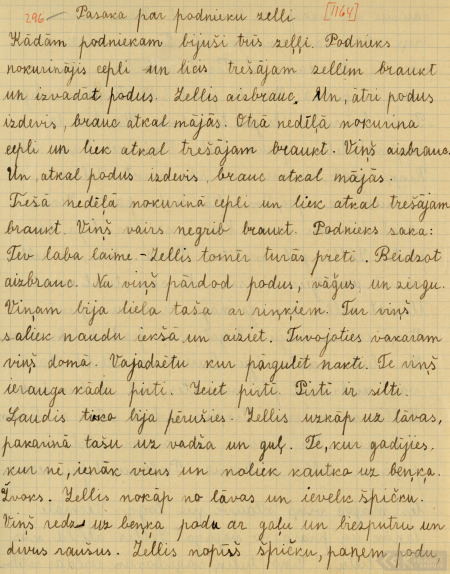 296 — Pasaka par podnieku zelli [1164]
Kādām podniekam bijuši trīs zeļļi. Podnieks
nokurinājis cepli un licis trešājam zellim braukt
un izvadat podus. Zellis aizbrauc. Un, ātri podus
izdevis, brauc atkal mājās. Otrā nedēļā nokurina
cepli un liek atkal trešājam braukt. Viņš aizbrauc.
Un, atkal podus izdevis, brauc atkal mājās.
Trešā nedēļā nokurinā cepli un liek atkal trešājam
braukt. Viņš vairs negrib braukt. Podnieks saka:
Tev laba laime. – Zellis tomēr turās pretī. Beidzot
aizbrauc. Nu viņš pārdod podus, vāģus, un zirgu.
Viņam bija liela taša ar riņķiem. Tur viņš
saliek naudu iekšā un aiziet. Tuvojoties vakaram
viņš domā. Vajadzētu kur pārgulēt nakti. Te viņš
ierauga kādu pirti. Ieiet pirtī. Pirtī ir silti.
Ļaudis tikko bija pērušies. Zellis uzkāp uz lāvas,
pakarinā tašu uz vadža un guļ. Te, kur gadījies,
kur nē, ienāk viens un noliek kautko uz beņķa.
Žvaks. Zellis nokāp no lāvas un ievelk špičku.
Viņš redz uz beņķa podu ar gaļu un biezputru un
divus raušus. Zellis nopīšš špičku, paņem podu